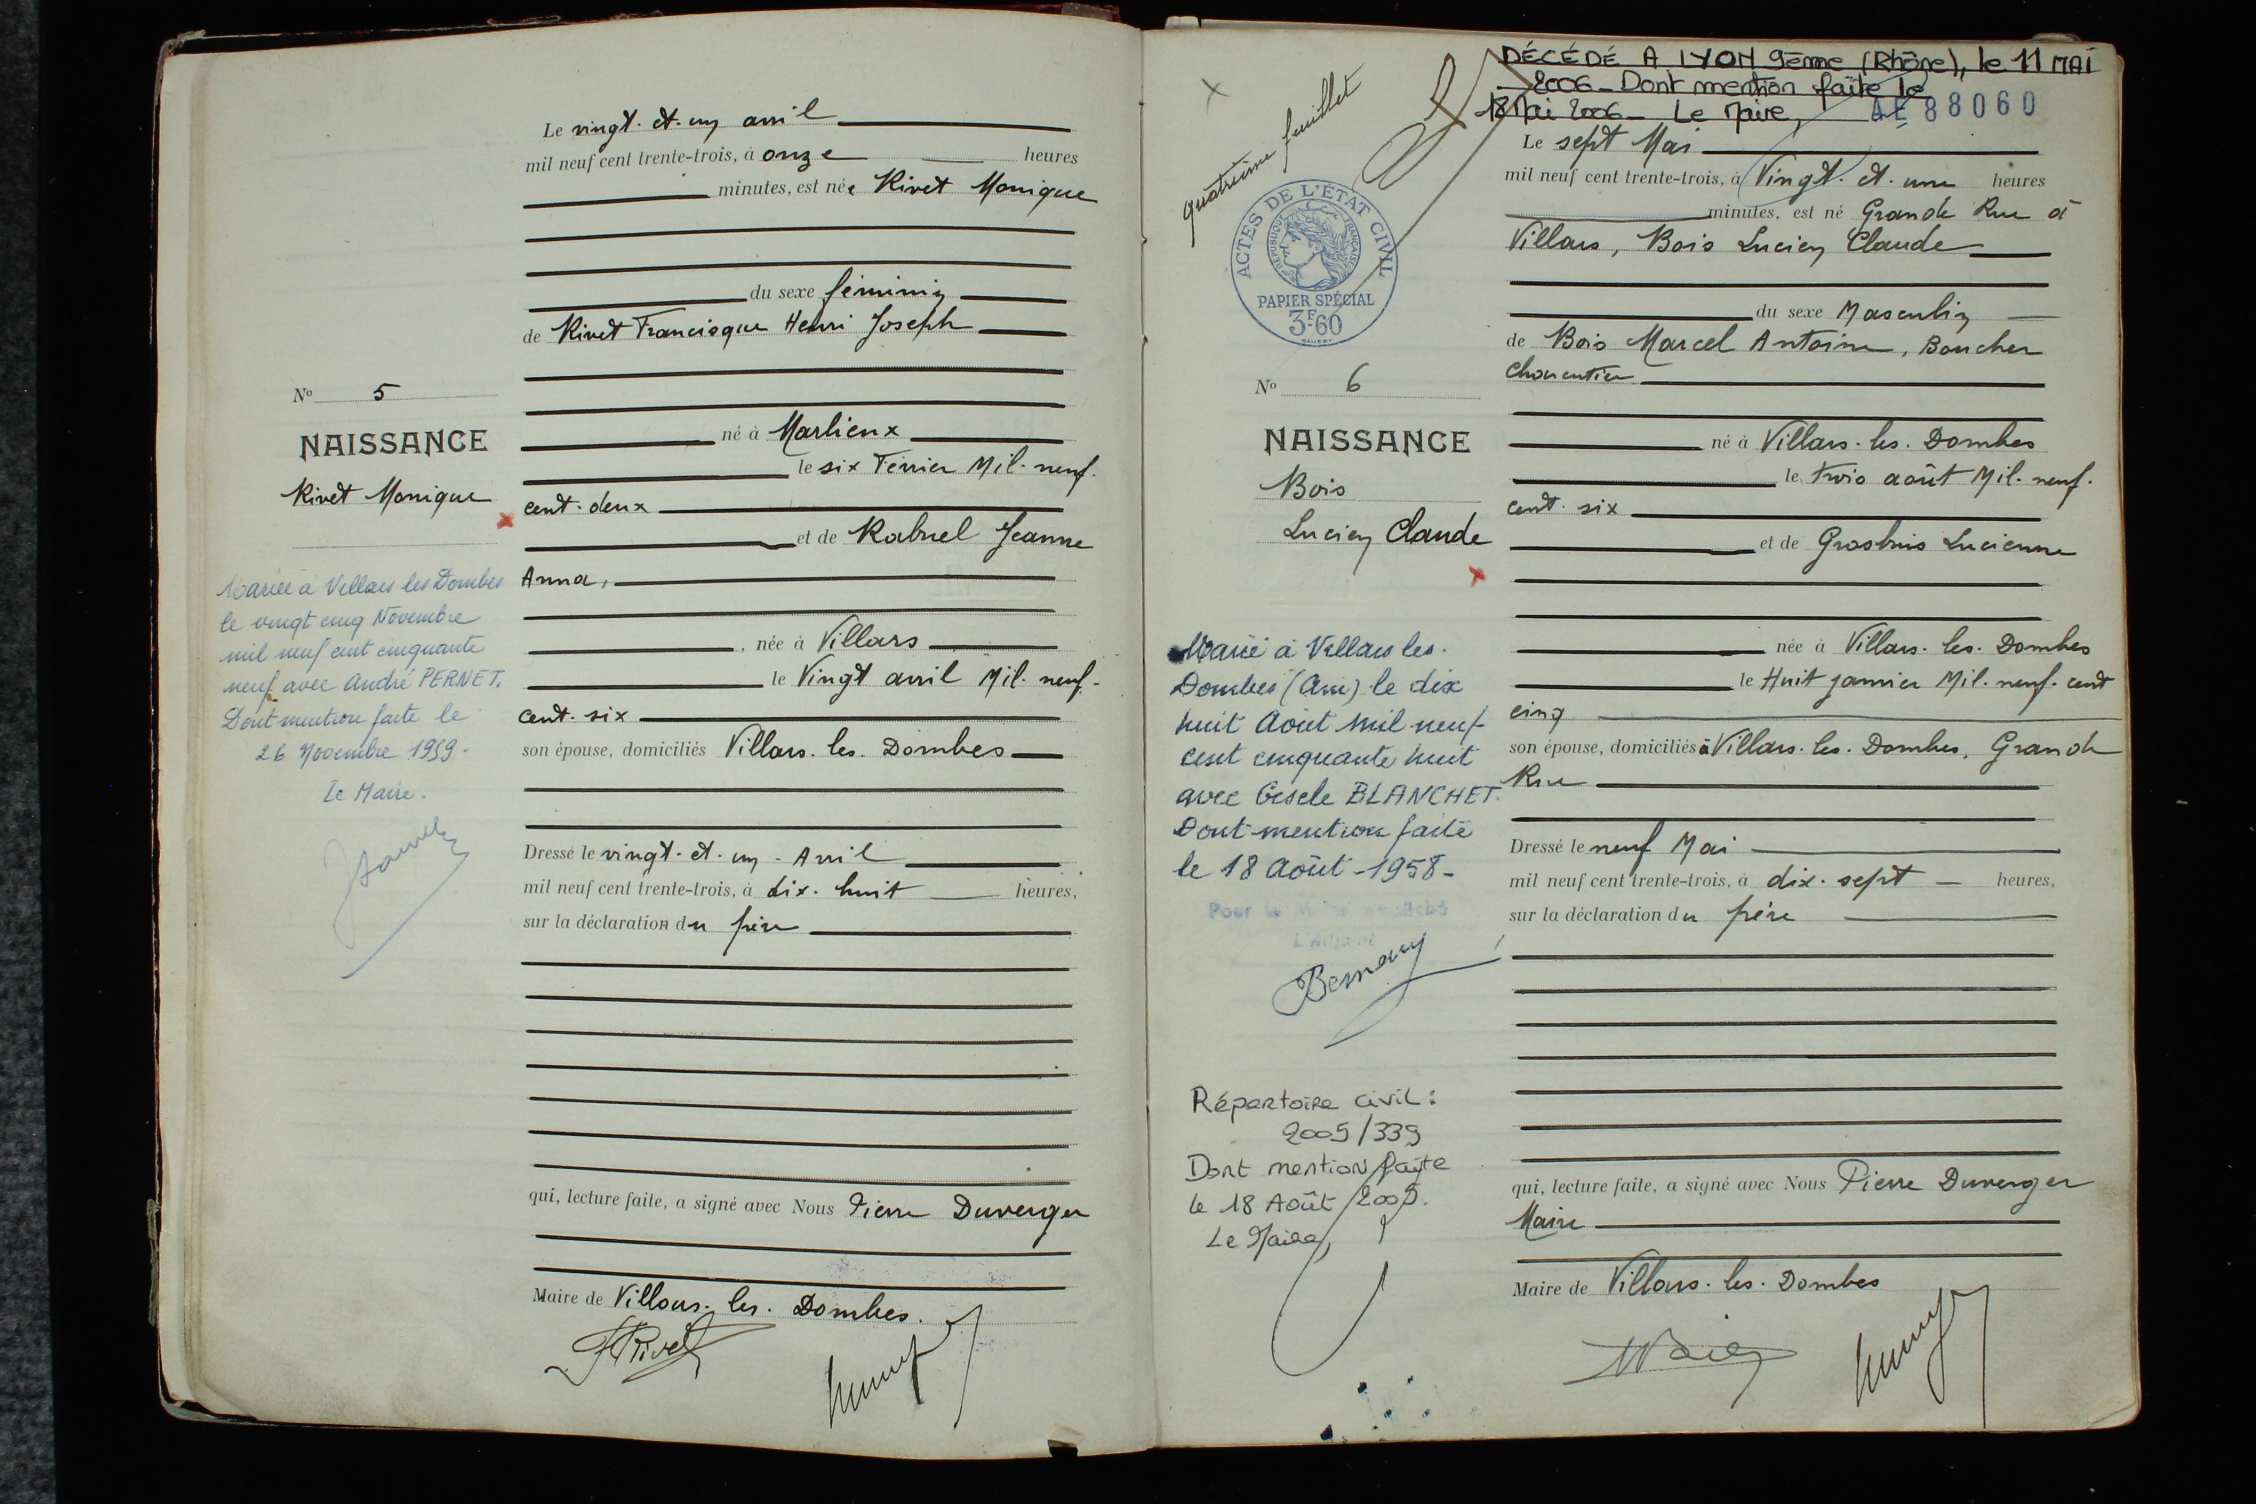 Le vingt. et. un avril
mil neuf cent trente-trois, à onze heures
minutes, est née Rivet Monique
du sexe féminin
de Rivet Francisque Henri Joseph
né à Marlieux
le six Février Mil. neuf.
cent. deux
et de Rabuel Jeanne
Anna,
née à Villars
le Vingt avril Mil. neuf.
cent. six
son épouse, domiciliés Villars. les. Dombes
Dressé le vingt. et. un. Avril
mil neuf cent trente-trois, à dix. huit heures,
sur la déclaration du père
qui, lecture faite, a signé avec Nous Pierre Duverger
Maire de Villars. les. Dombes.
FRivet
No 5
NAISSANCE
Rivet Monique
Mariée à Villars les Dombes
le vingt cinq Novembre
mil neuf cent cinquante
neuf avec André PERNET.
Dont mention faite le
26 Novembre 1959.
Le Maire.
DÉCÉDÉ A LYON 9ème (Rhône), le 11 MAI
2006_ Dont mention faite le
18 Mai 2006_ Le Maire,
AE 88060
quatrième feuillet
ACTES DE L'ÉTAT CIVIL
RÉPUBLIQUE FRANÇAISE
PAPIER SPÉCIAL
3F.60
No 6
NAISSANCE
Bois
Lucien Claude
Marié à Villars les.
Dombes (Ain) le dix
huit Août mil neuf
cent cinquante huit
avec Gisèle BLANCHET.
Dont mention faite
le 18 Août -1958-
Pour le Maire empêché
L'Adjoint
Répertoire civil :
2005/339
Dont mention faite
le 18 Août 2005.
Le Maire,
Le sept Mai
mil neuf cent trente-trois, à Vingt. et. une heures
minutes, est né Grande Rue à
Villars, Bois Lucien Claude
du sexe Masculin
de Bois Marcel Antoine, Boucher
Charcutier
né à Villars. les. Dombes
le trois août Mil. neuf.
cent. six
et de Grosbuis Lucienne
née à Villars. les. Dombes
le Huit janvier Mil. neuf. cent
cinq
son épouse, domiciliés à Villars. les. Dombes, Grande
Rue
Dressé le neuf Mai
mil neuf cent trente-trois, à dix. sept heures,
sur la déclaration du père
qui, lecture faite, a signé avec Nous Pierre Duverger
Maire
Maire de Villars. les. Dombes